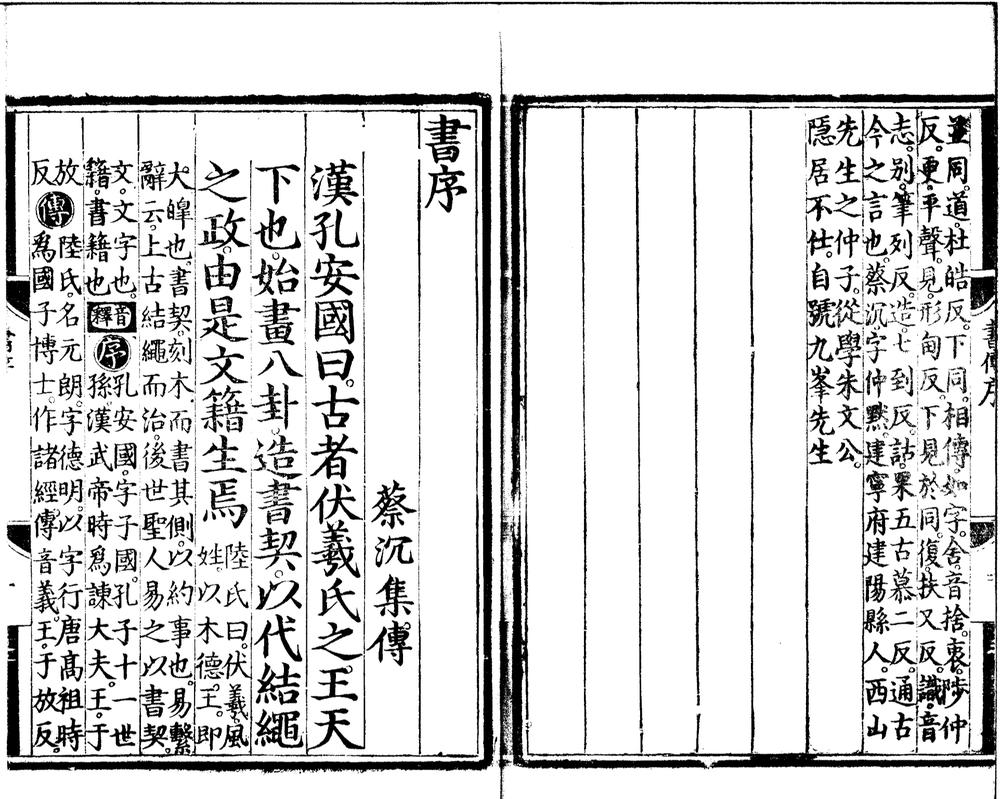 並同。道。杜皓反。下同。相傳。如字。舍。音捨。衷。陟仲
反。更。平聲。見。形甸反。下見於同。復。扶又反。識。音
志。别。筆列反。造。七到反。詁。果五古慕二反。通古
今之言也。蔡沉。字仲黙。建寧府建陽縣人。西山
先生之仲子。從學朱文公。
隠居不仕。自號九峯先生
書傳序
書序
蔡沉集傳
漢孔安國曰。古者伏羲氏之王天
下也。始畫八卦。造書契。以代結繩
之政。由是文籍生焉
陸氏曰。伏羲。風
姓。以木德。王。即
大。皡也。書契。刻木而書其側。以約事也。易繫
辭云。上古結繩而治。後世聖人易之以書契。
文。文字也。
籍。書籍也
音釋
序
孔安國。字子國。孔子十一世
孫。漢武帝時爲諫大夫。王。于
放
反
傳
陸氏。名元朗。字德明。以字行。唐髙祖時
爲國子博士。作諸經傳音義。王。于放反。